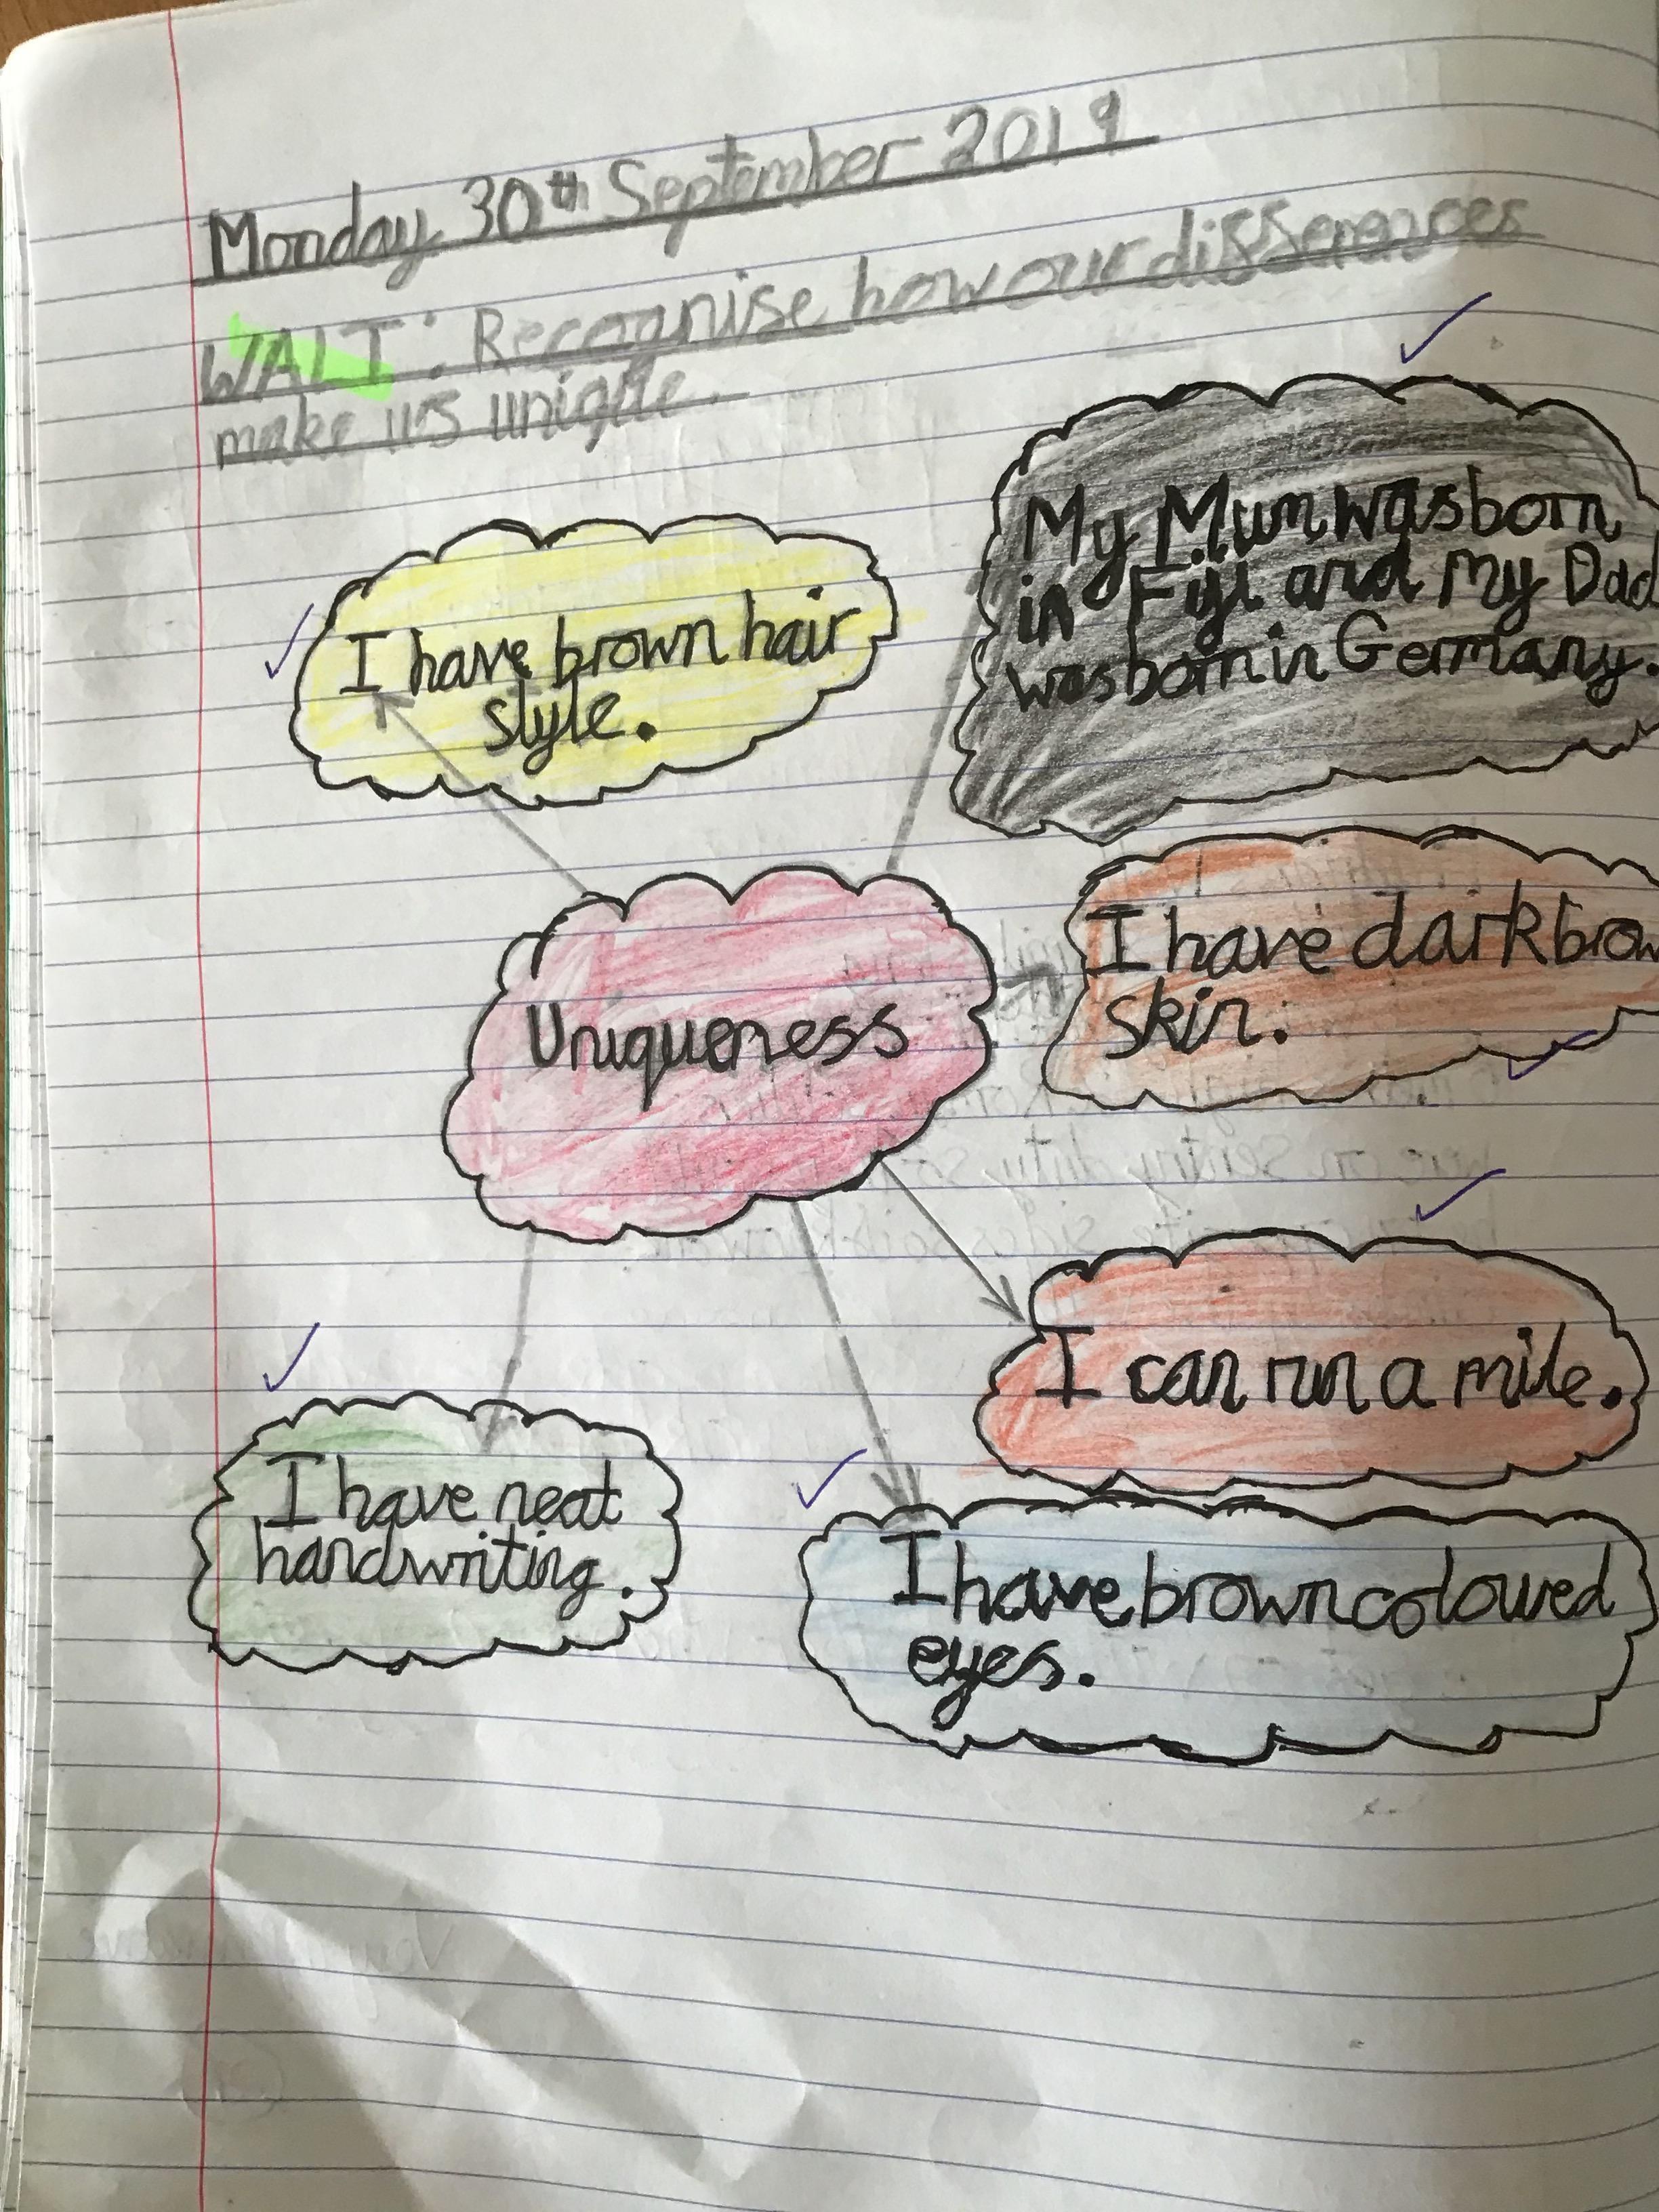 Monday 30th September 2019
WALT: Recognise how our differences
make us unique.
I have brown hair
style.
My Mum was born
in Fiji and my Dad
was born in Germany.
Uniqueness
I have dark brow
skin.
I can run a mile.
I have neat
handwriting.
I have brown coloured
eyes.